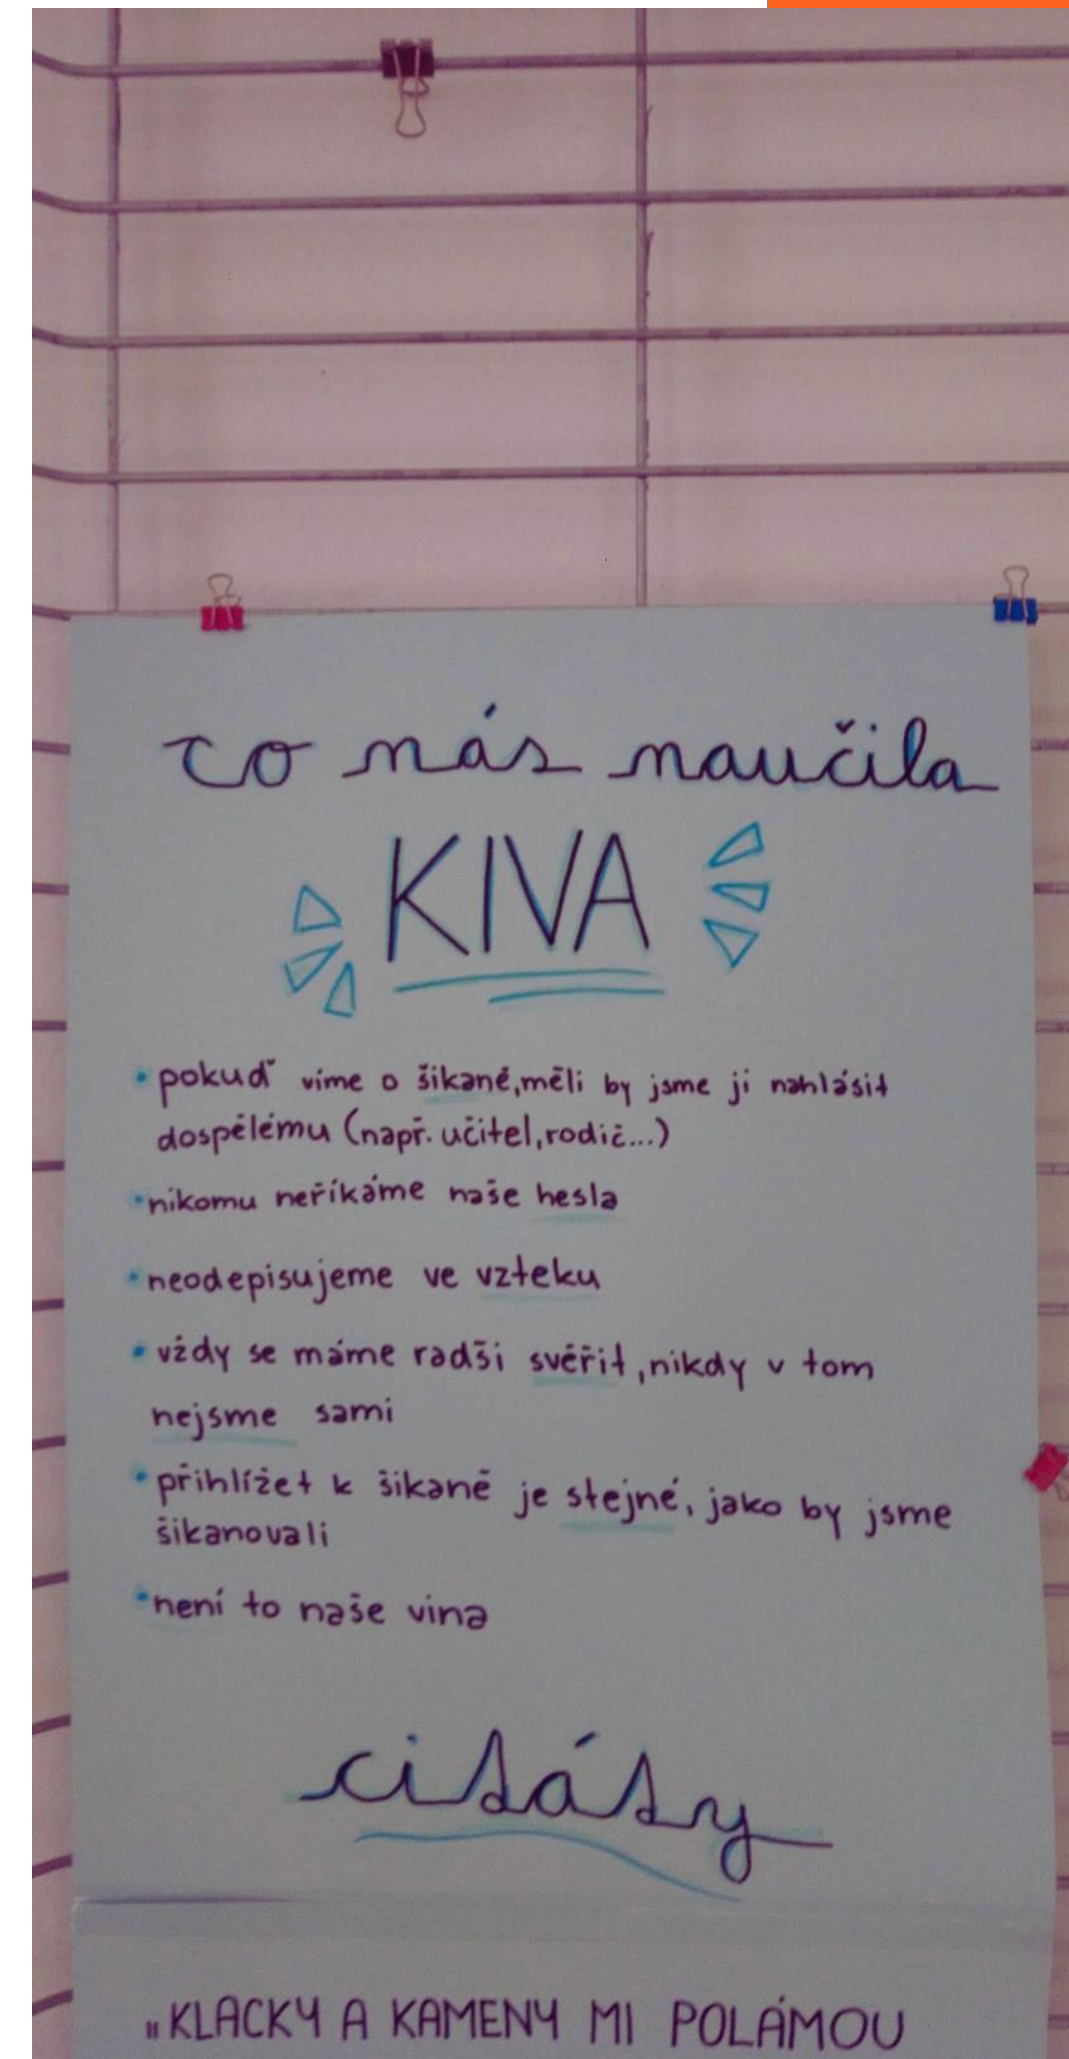 co nás naučila
KIVA
• pokuď víme o šikaně, měli by jsme ji nahlásit
dospělému (např. učitel, rodič...)
• nikomu neříkáme naše hesla
• neodepisujeme ve vzteku
• vždy se máme radši svěřit, nikdy v tom
nejsme sami
• přihlížet k šikaně je stejné, jako by jsme
šikanovali
• není to naše vina
citáty
„KLACKY A KAMENY MI POLÁMOU